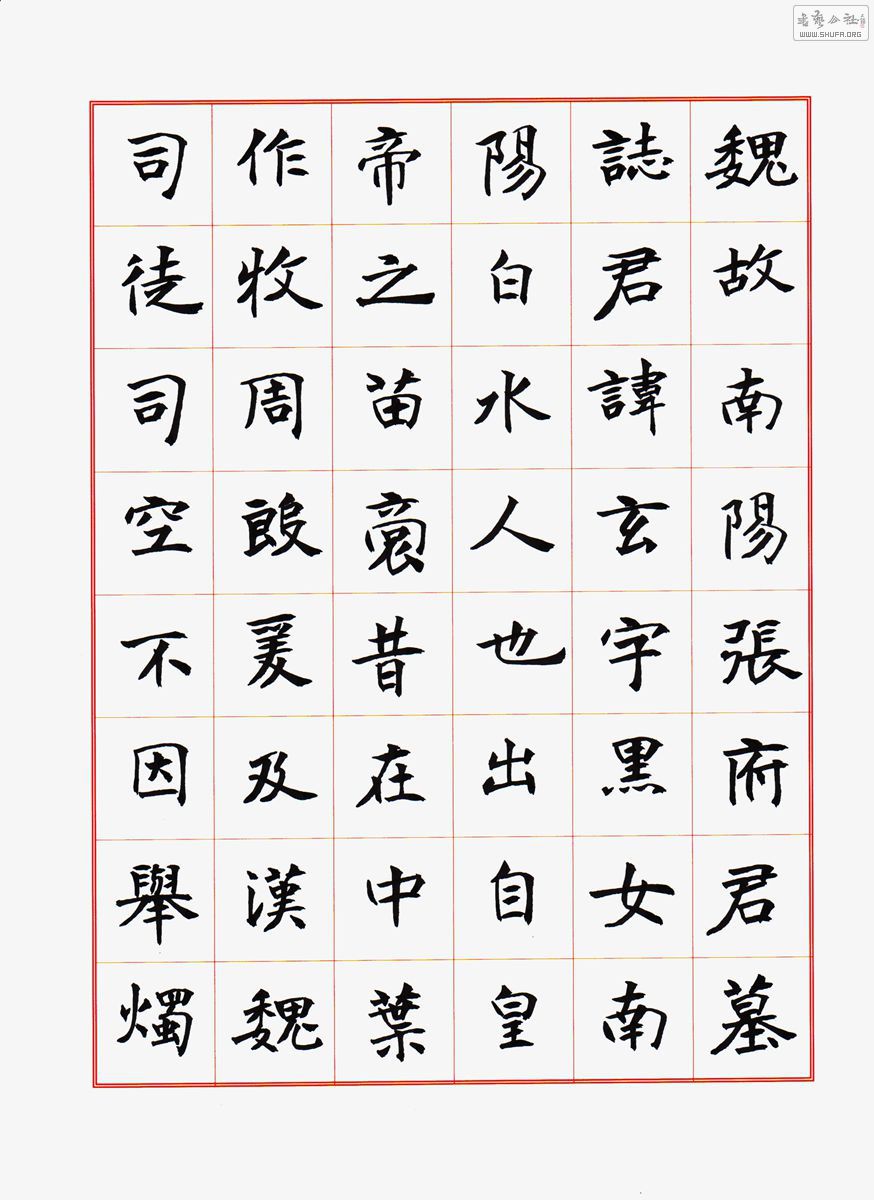 魏故南陽張府君墓
誌君諱玄字黑女南
陽白水人也出自皇
帝之苗裔昔在中葉
作牧周殷爰及漢魏
司徒司空不因舉燭
WWW.SHUFA.ORG